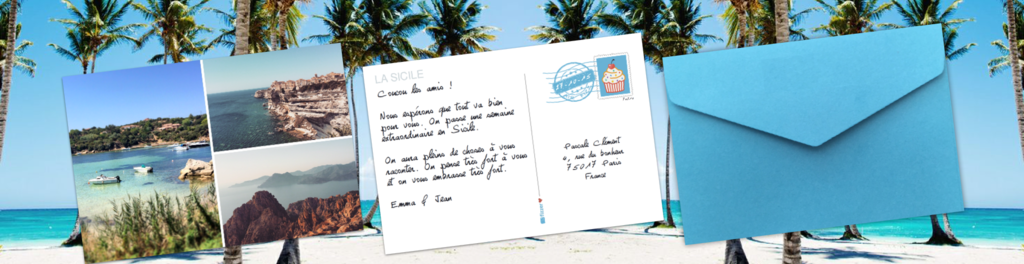 LA SICILE
Coucou les amis !
Nous espérons que tout va bien
pour vous. On passe une semaine
extraordinaire en Sicile.
On aura pleins de choses à vous
raconter. On pense très fort à vous
et on vous embrasse très fort.
Emma & Jean
Pascale Clément
rue du bonheur
75017 Paris
France